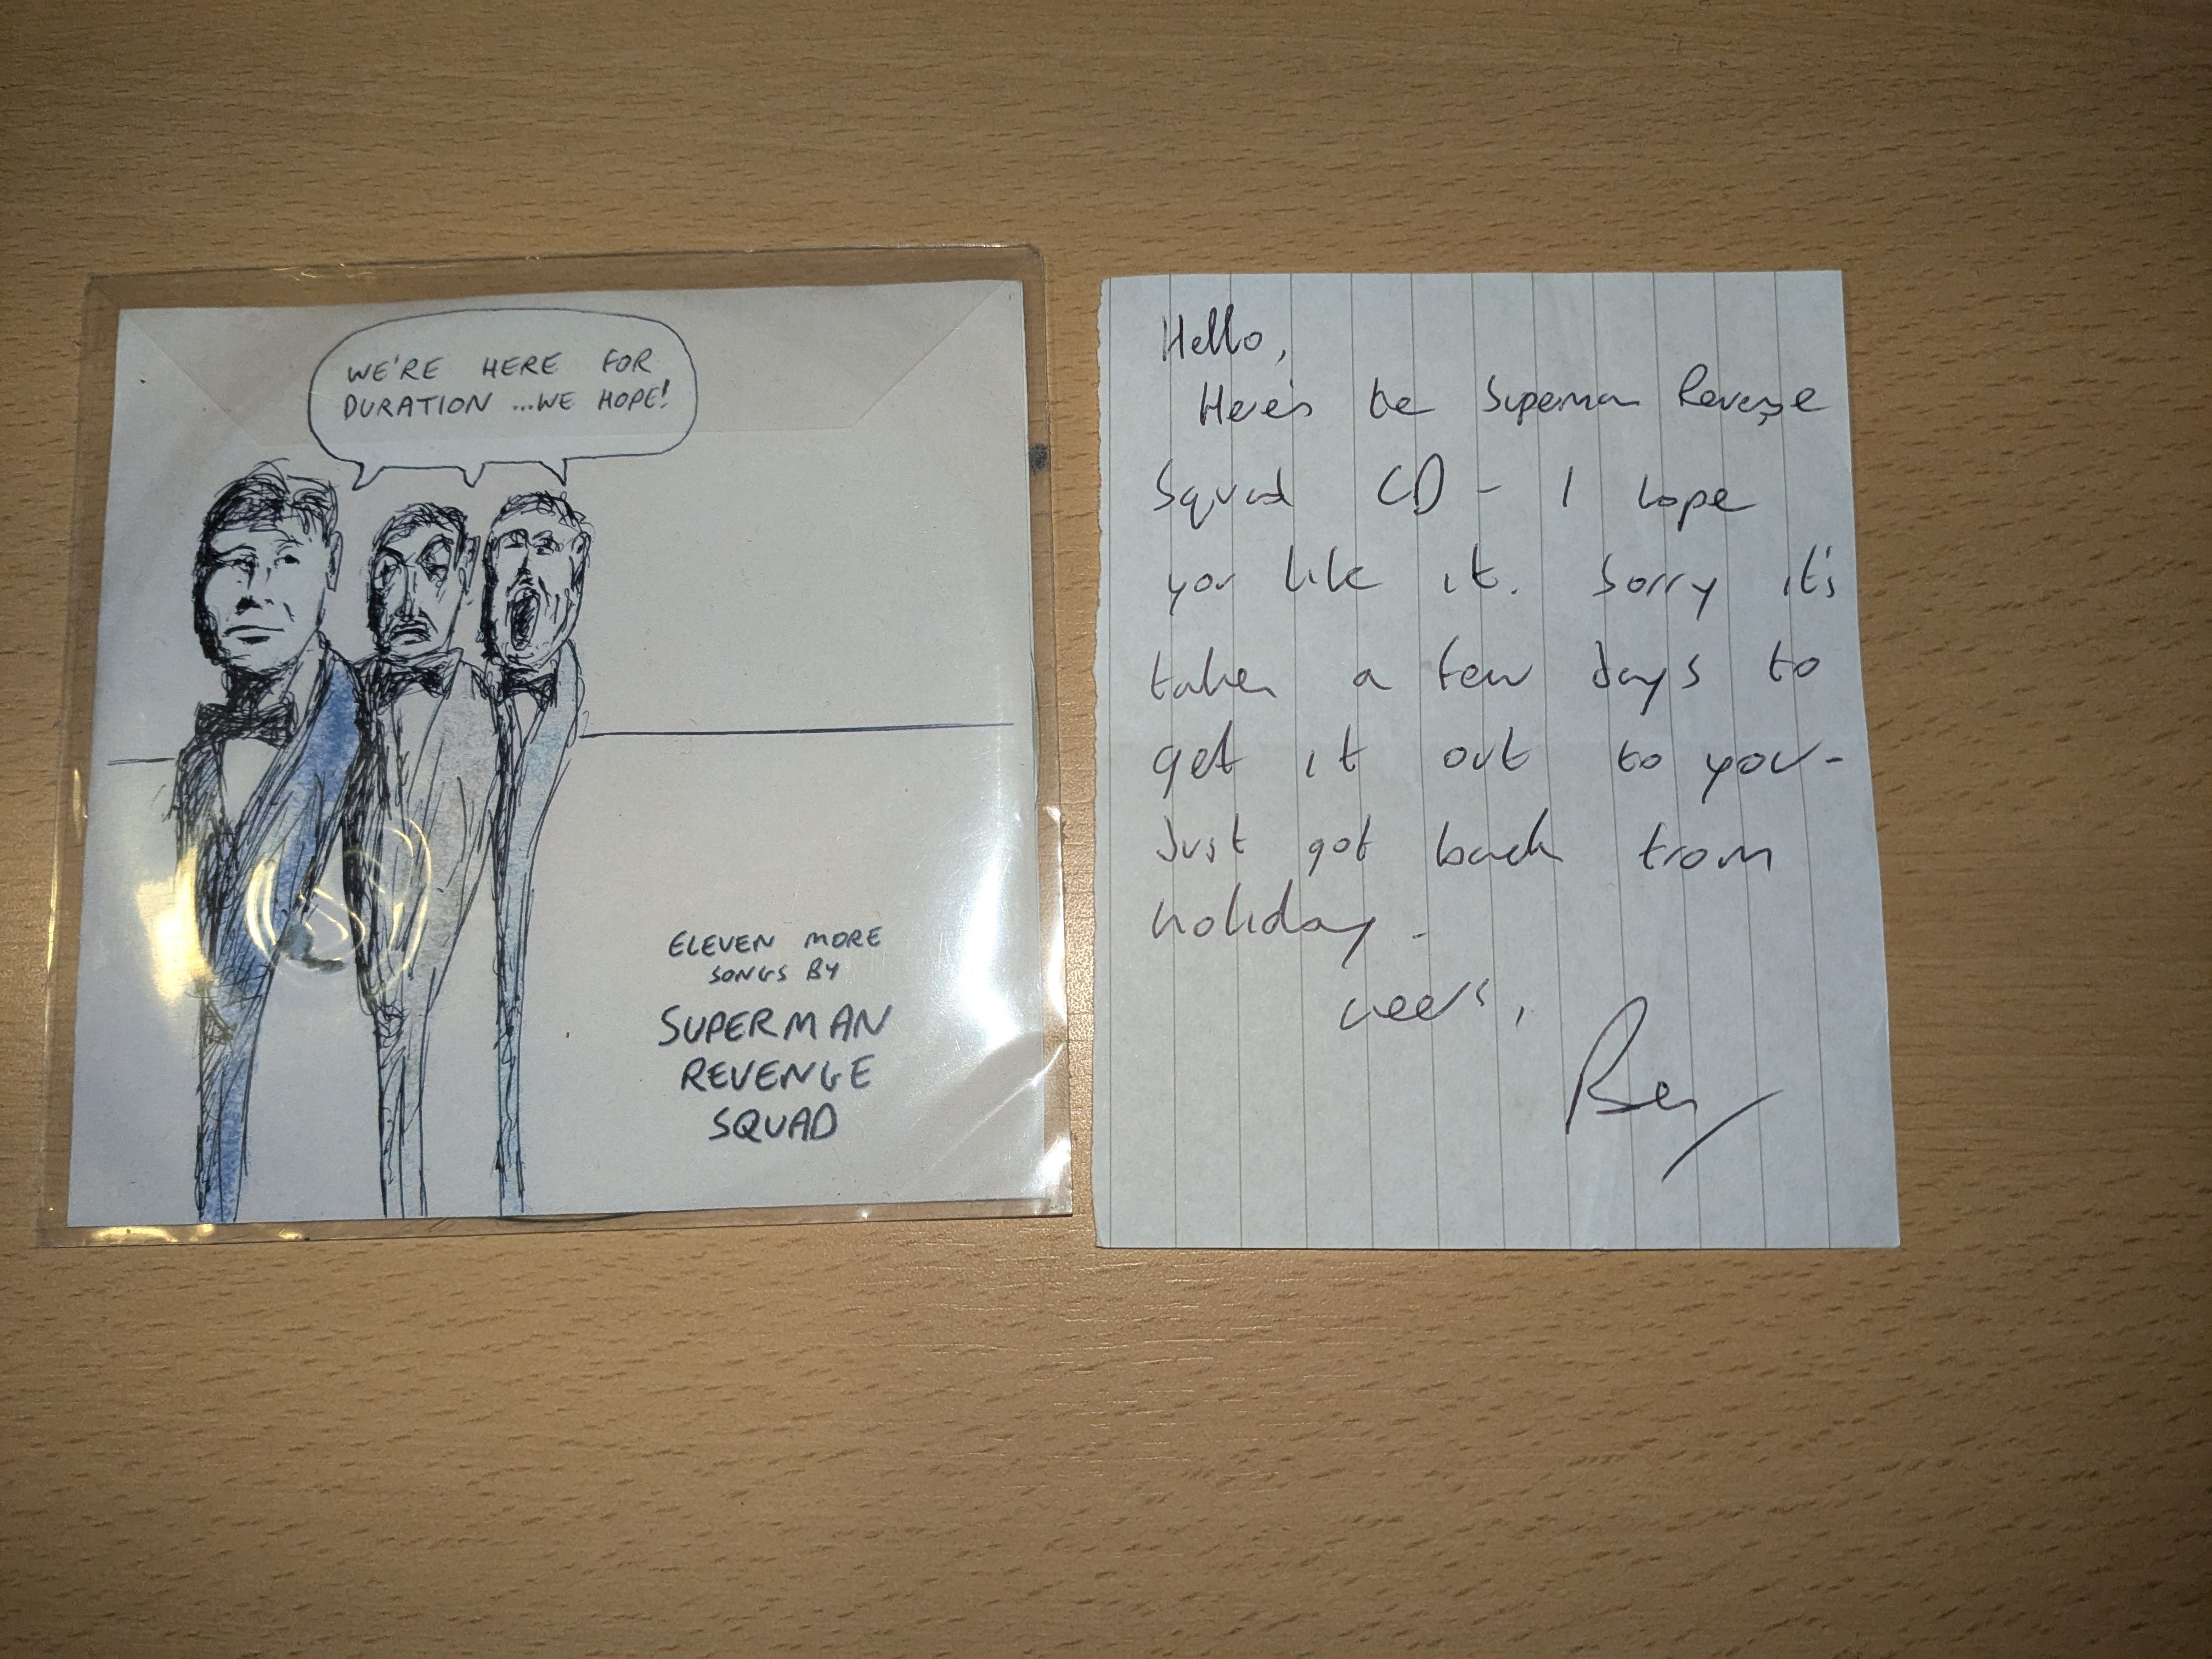 WE'RE HERE FOR
DURATION ...WE HOPE!
ELEVEN MORE
SONGS BY
SUPERMAN
REVENGE
SQUAD
Hello,
Here's the Superman Revenge
Squad CD - I hope
you like it. Sorry it's
taken a few days to
get it out to you -
Just got back from
holiday.
cheers,
Ben